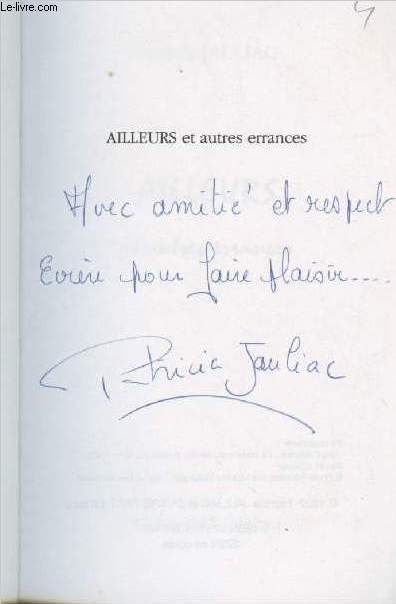 Le-livre.com
AILLEURS et autres errances
Avec amitié et respect
Ecrire pour faire plaisir....
Patricia Jauliac